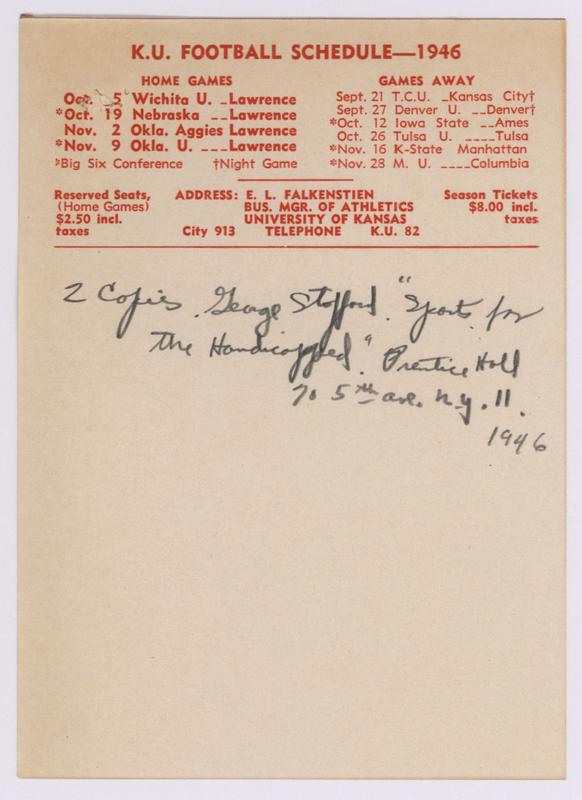 K.U. FOOTBALL SCHEDULE—1946
HOME GAMES
Oct. 5 Wichita U. _Lawrence
*Oct. 19 Nebraska __Lawrence
Nov. 2 Okla. Aggies Lawrence
*Nov. 9 Okla. U. ___Lawrence
*Big Six Conference †Night Game
GAMES AWAY
Sept. 21 T.C.U. _Kansas City†
Sept. 27 Denver U. __Denver†
*Oct. 12 Iowa State __Ames
Oct. 26 Tulsa U. ____Tulsa
*Nov. 16 K-State Manhattan
*Nov. 28 M. U. ____Columbia
Reserved Seats,
(Home Games)
$2.50 incl.
taxes
ADDRESS: E. L. FALKENSTIEN
BUS. MGR. OF ATHLETICS
UNIVERSITY OF KANSAS
City 913 TELEPHONE K.U. 82
Season Tickets
$8.00 incl.
taxes
2 Copies. George Stafford. "Sports for
the Handicapped". Prentice Hall
70 5th ave. N.Y. 11.
1946